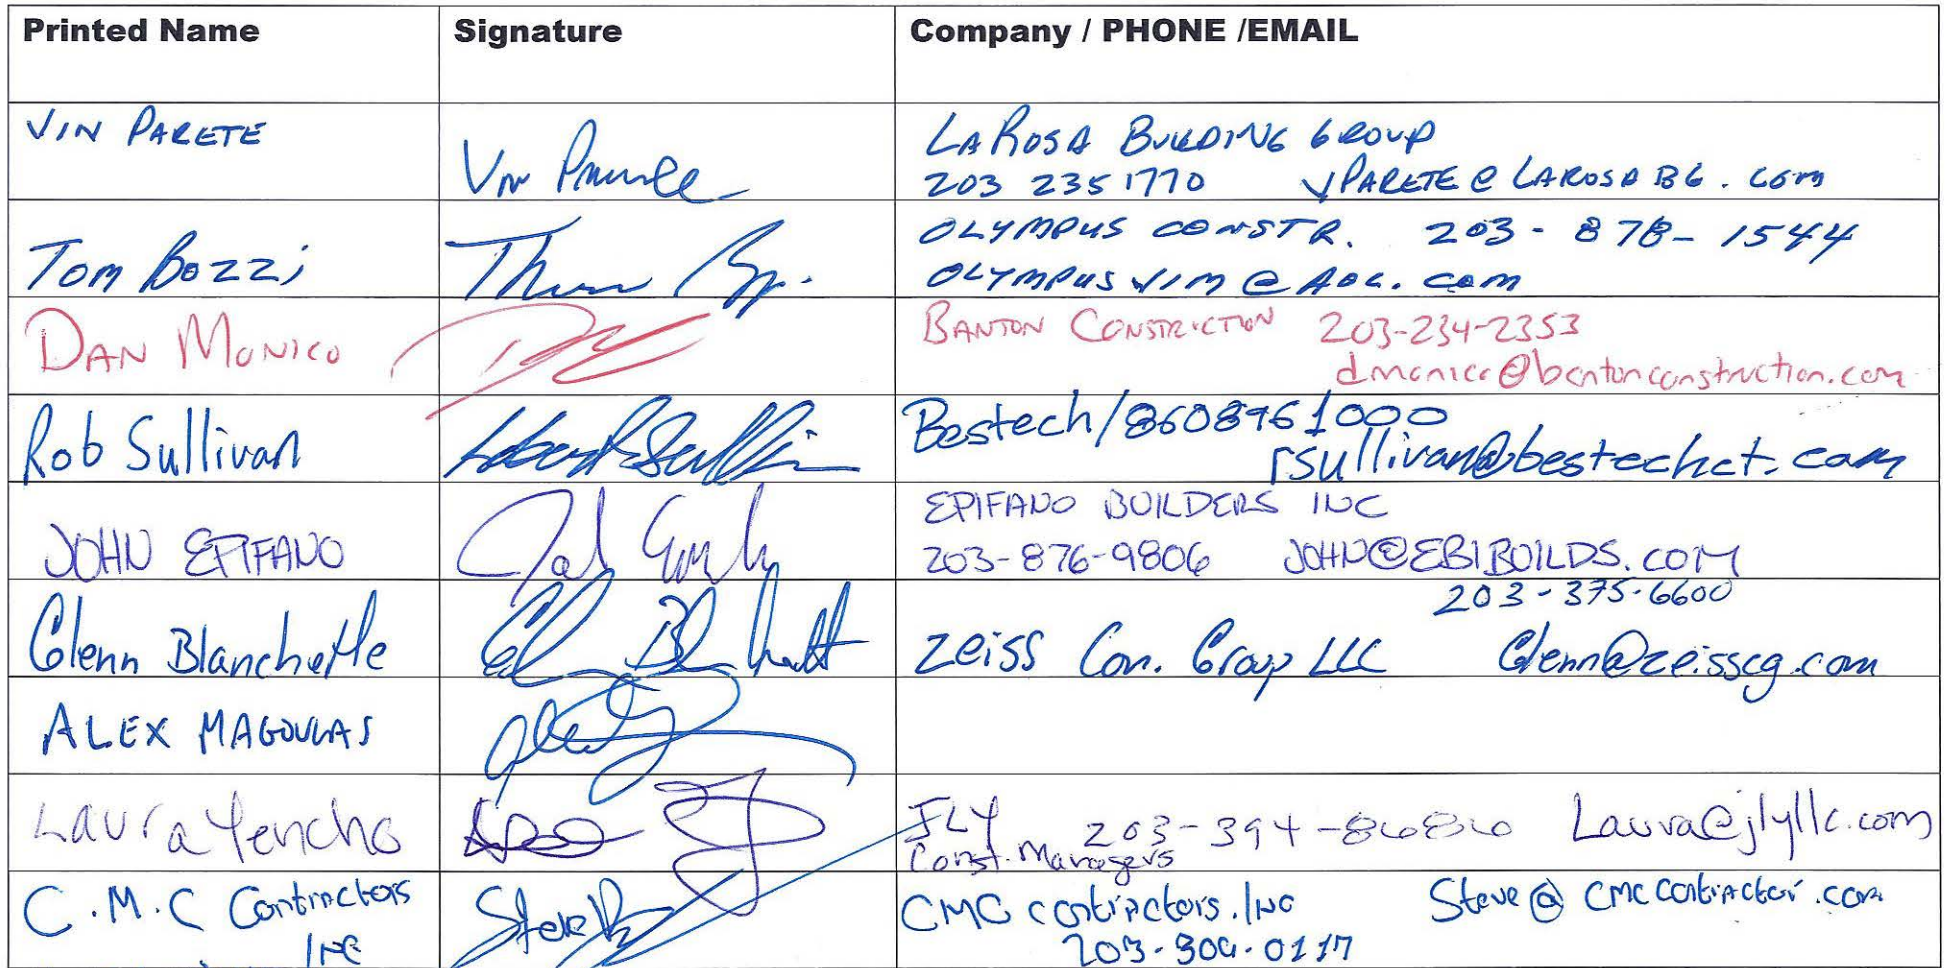 Printed Name Signature Company / PHONE /EMAIL
VIN PARETE
LAROSA BUILDING GROUP
203 235 1770 VPARETE@LAROSABG.com
Tom Bozzi
OLYMPUS CONSTR. 203-878-1544
OLYMPUSVIM@AOL.com
DAN MONICO
BANTON CONSTRUCTION 203-234-2353
dmonico@bantonconstruction.com
Rob Sullivan
Bestech/8608961000
rsullivan@bestechct.com
JOHN EPIFANO
EPIFANO BUILDERS INC
203-876-9806 JOHN@EBIBUILDS.COM
203-375-6600
Glenn Blanchette Zeiss Con. Group LLC Glenn@zeisscg.com
ALEX MAGOULAS
Laura Yencho JLY 203-394-8686 Laura@jlyllc.com
Const. Managers
C.M.C Contractors CMC contractors.INC Steve@cmccontractor.com
INC 203-300-0117